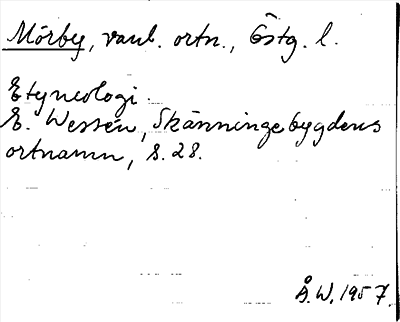 Mörby, vanl. ortn., Östg. l.
Etymologi.
E. Wessén, Skänningebygdens
ortnamn, s. 28.
Å. W. 1957.